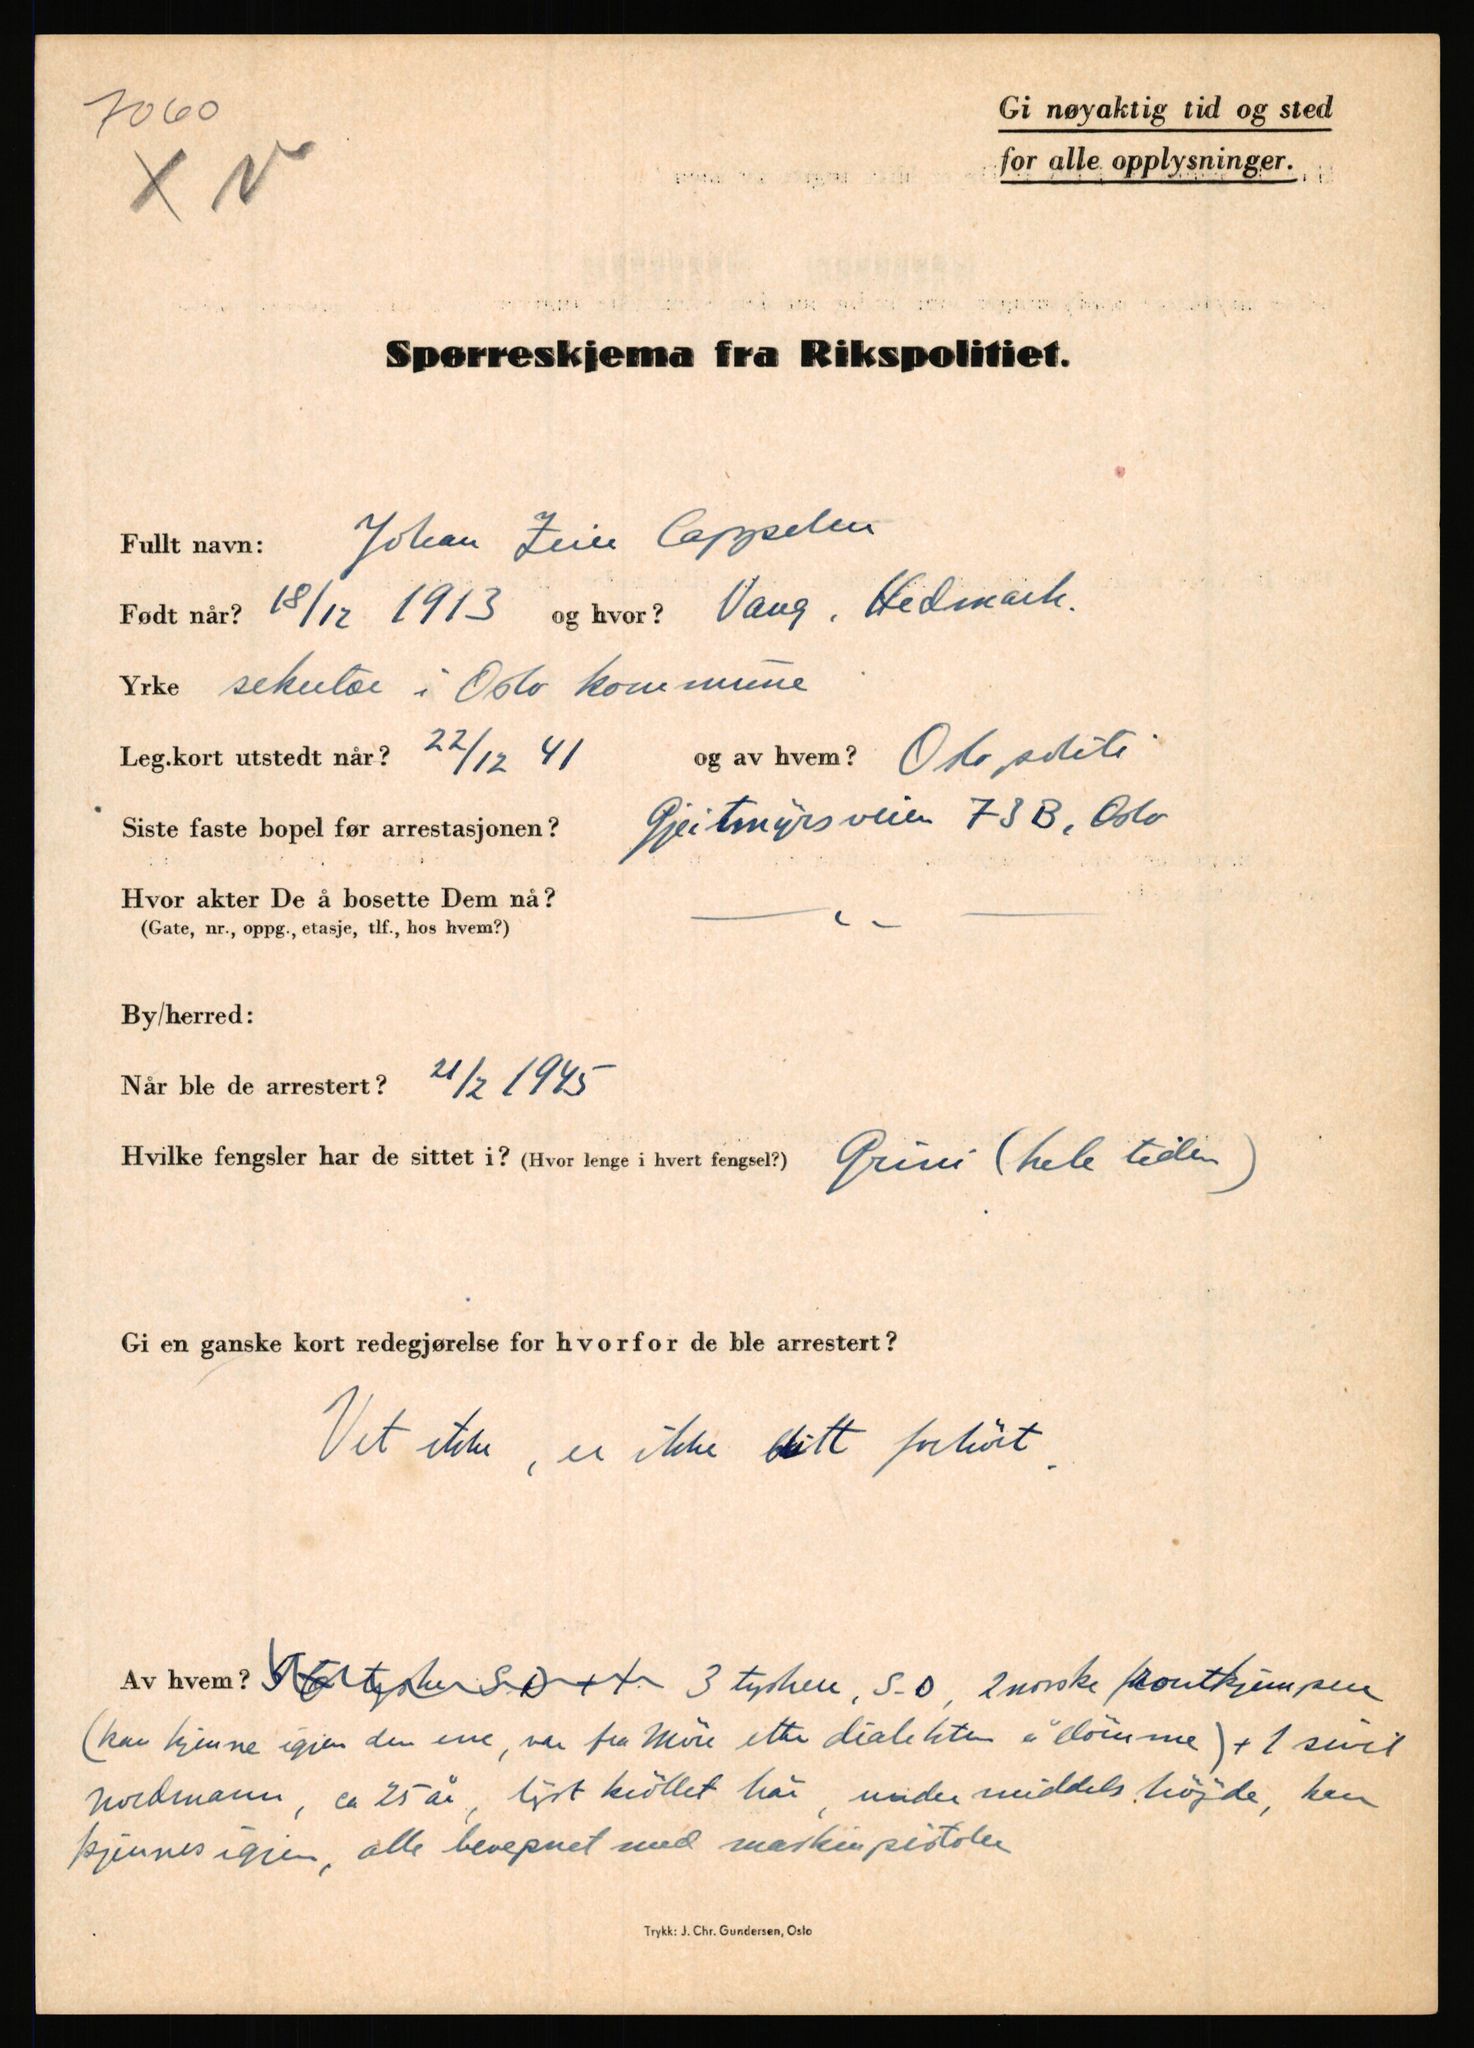 7060
X V
Gi nøyaktig tid og sted
for alle opplysninger.
Spørreskjema fra Rikspolitiet.
Fullt navn: Johan Zeier Cappelen
Født når? 18/12 1913 og hvor? Vang, Hedmark.
Yrke sekretær i Oslo kommune
Leg.kort utstedt når? 22/12 41 og av hvem? Oslo politi
Siste faste bopel før arrestasjonen? Gjeitmyrsveien 73 B, Oslo
Hvor akter De å bosette Dem nå? — " —
(Gate, nr., oppg., etasje, tlf., hos hvem?)
By/herred:
Når ble de arrestert? 21/2 1945
Hvilke fengsler har de sittet i? (Hvor lenge i hvert fengsel?) Grini (hele tiden)
Gi en ganske kort redegjørelse for hvorfor de ble arrestert?
Vet ikke, er ikke blitt forhört.
Av hvem? 3 tyskere, S.D, 2 norske frontkjempere
(kan kjenne igjen den ene, var fra Möre etter dialekten å dömme) + 1 sivil
nordmann, ca 25 år, lyst kröllet hår, under middels höyde, kan
kjennes igjen, alle bevepnet med maskinpistoler
Trykk: J. Chr. Gundersen, Oslo